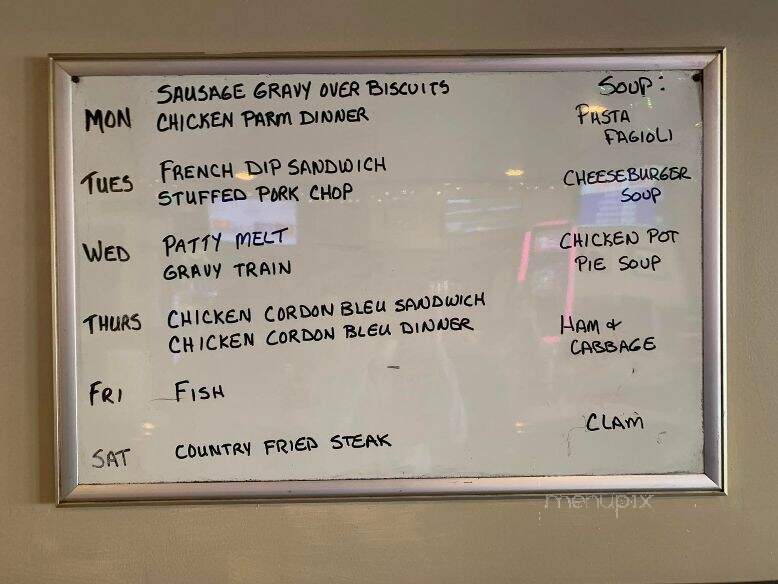 SAUSAGE GRAVY OVER BISCUITS
SOUP:
MON CHICKEN PARM DINNER
PASTA
FAGIOLI
TUES FRENCH DIP SANDWICH
STUFFED PORK CHOP
CHEESEBURGER
SOUP
WED PATTY MELT
GRAVY TRAIN
CHICKEN POT
PIE SOUP
THURS CHICKEN CORDON BLEU SANDWICH
CHICKEN CORDON BLEU DINNER
HAM &
CABBAGE
FRI FISH
CLAM
SAT COUNTRY FRIED STEAK
menupix